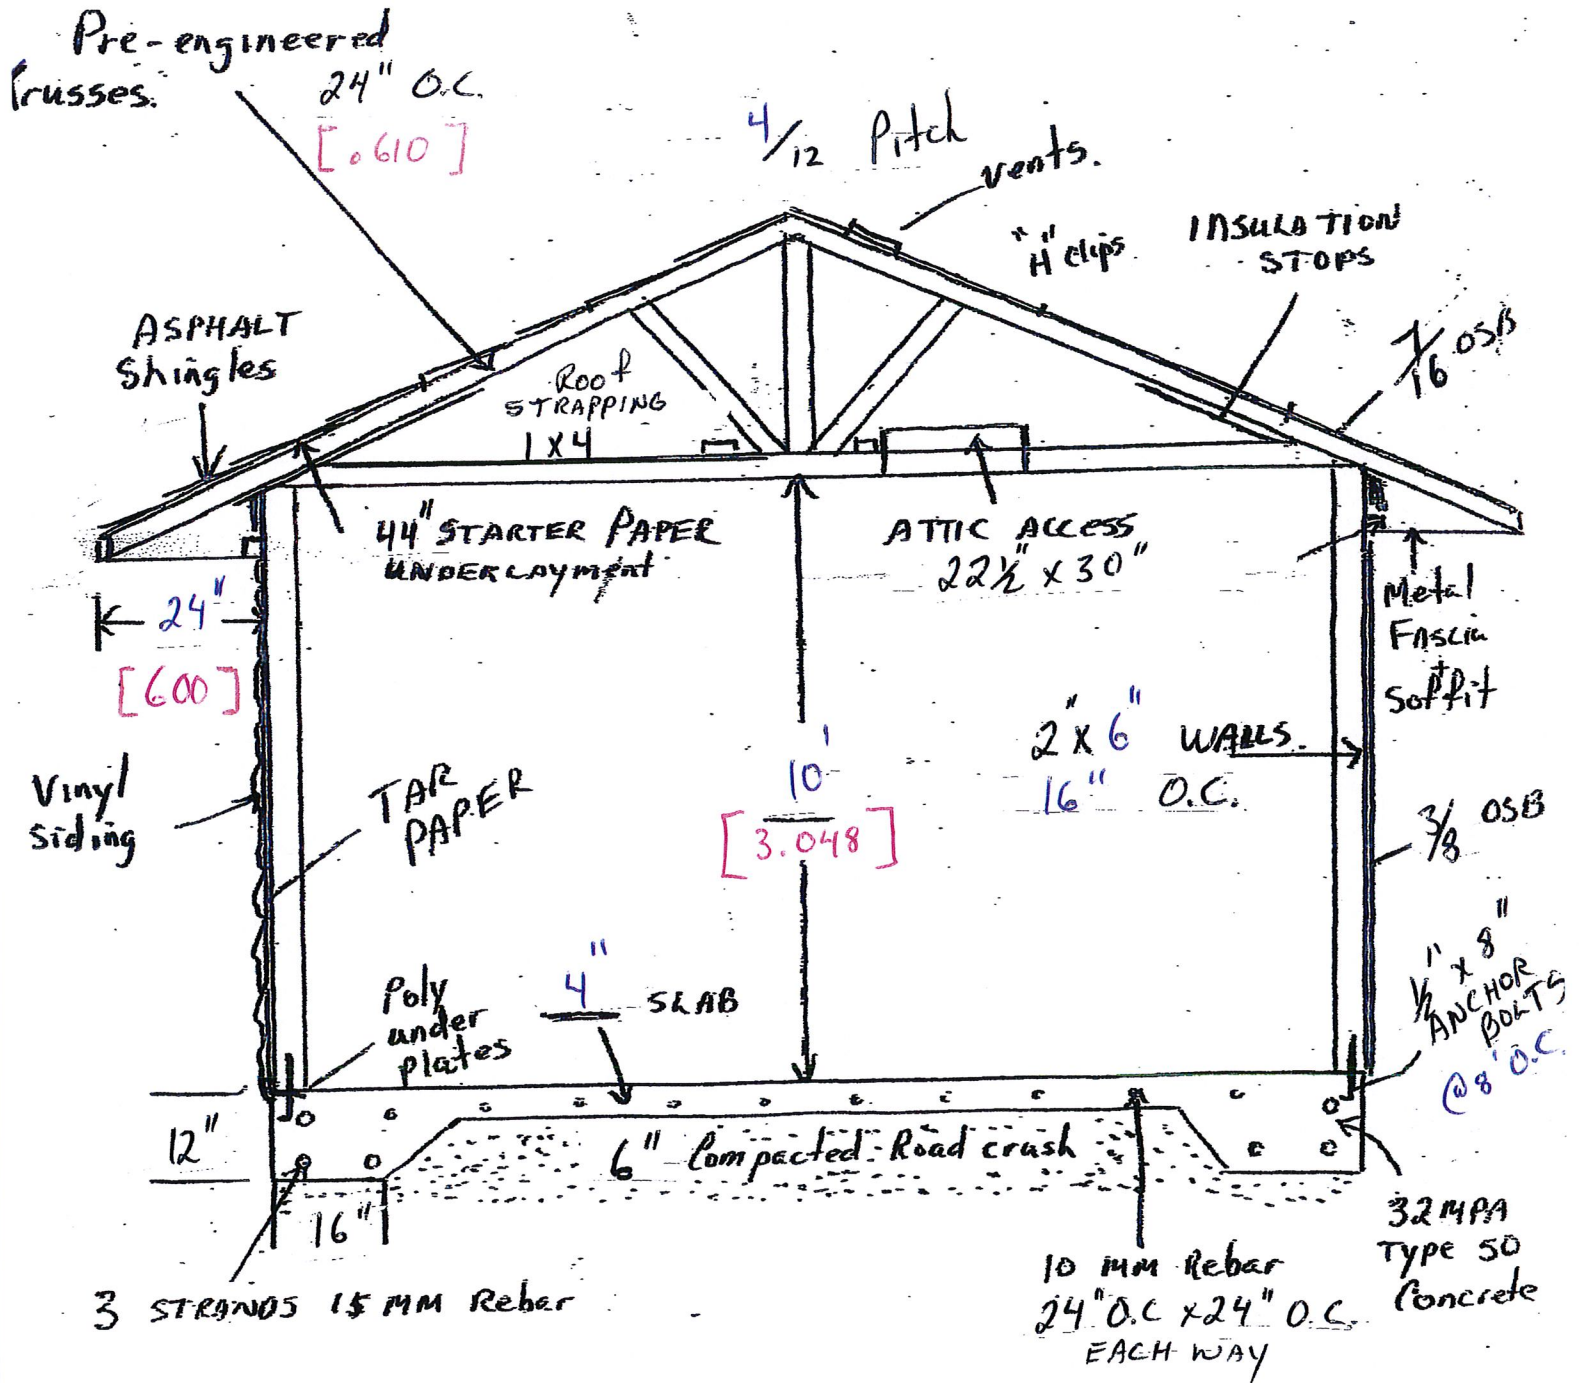 Pre-engineered
Trusses.
24" O.C.
[.610]
4/12 Pitch
vents.
"H" clips
INSULATION
STOPS
7/16 OSB
ASPHALT
Shingles
Roof
STRAPPING
1 X 4
44" STARTER PAPER
UNDERLAYment
ATTIC ACCESS
22½" x 30"
24"
[600]
Metal
Fascia
+
Soffit
2" x 6" WALLS.
16" O.C.
10'
[3.048]
Vinyl
siding
TAR
PAPER
3/8 OSB
½" x 8"
ANCHOR
BOLTS
@ 8' O.C.
Poly
under
plates
4" SLAB
12"
6" Compacted Road crush
16"
3 STRANDS 15 MM Rebar
10 MM Rebar
24" O.C x 24" O.C.
EACH WAY
32 MPA
Type 50
Concrete